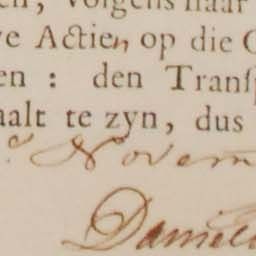 en, volgens haar
ve Actien op die
en : den Transp
aalt te zyn, dus
Novem
Daniel